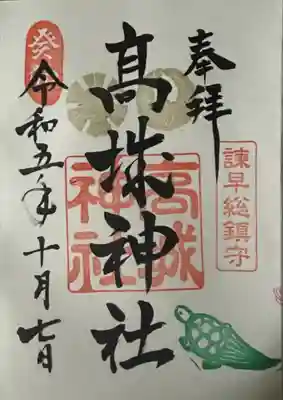 奉拝
諫早総鎮守
髙城神社
高城
神社
癸
令和五年十月七日